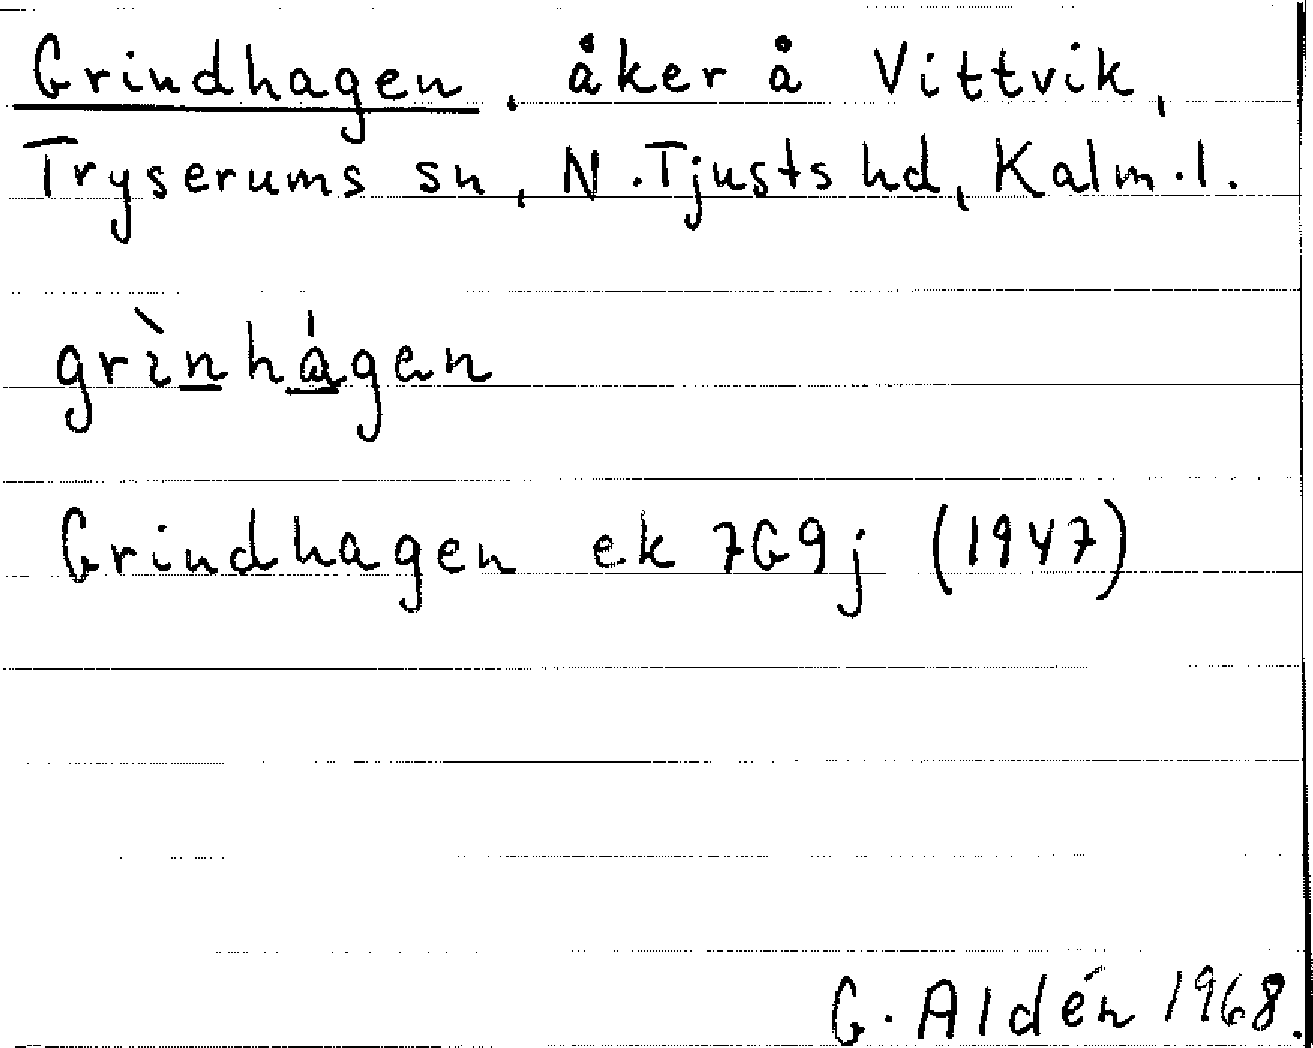 Grindhagen, åker å Vittvik,
Tryserums sn, N. Tjusts hd, Kalm. l.
grìnhágen
Grindhagen ek 7G9j (1947)
G. Aldén 1968.